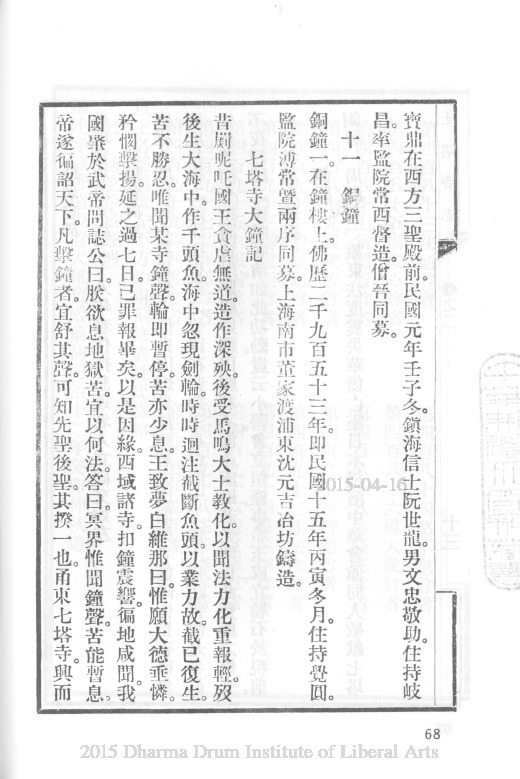 寶鼎在西方三聖殿前。民國元年壬子冬。鎮海信士阮世龍。男文忠敬助。住持岐
昌。率監院常西督造。僧晉同募。
十一　銅鐘
銅鐘一。在鐘樓上。佛歷二千九百五十三年。即民國十五年丙寅冬月。住持覺圓。
監院溥常。暨兩序同募。上海南市董家渡浦東沈元吉冶坊鑄造。
七塔寺大鐘記
昔罽昵吒國王。貪虐無道。造作深殃。後受馬鳴大士敎化。以聞法力。化重報輕。歿
後生大海中。作千頭魚。海中忽現劍輪。時時迴注。截斷魚頭。以業力故。截已復生。
苦不勝忍。唯聞某寺鐘聲。輪即暫停。苦亦少息。王致夢白維那曰。惟願大德。垂憐
矜憫。擊揚延之。過七日已。罪報畢矣。以是因緣。西域諸寺。扣鐘震響。徧地咸聞。我
國肇於武帝。問誌公曰。朕欲息地獄苦。宜以何法。答曰。冥界惟聞鐘聲。苦能暫息。
帝遂徧詔天下。凡擊鐘者。宜舒其聲。可知先聖後聖。其揆一也。甬東七塔寺。興而
68
2015-04-16
2015 Dharma Drum Institute of Liberal Arts